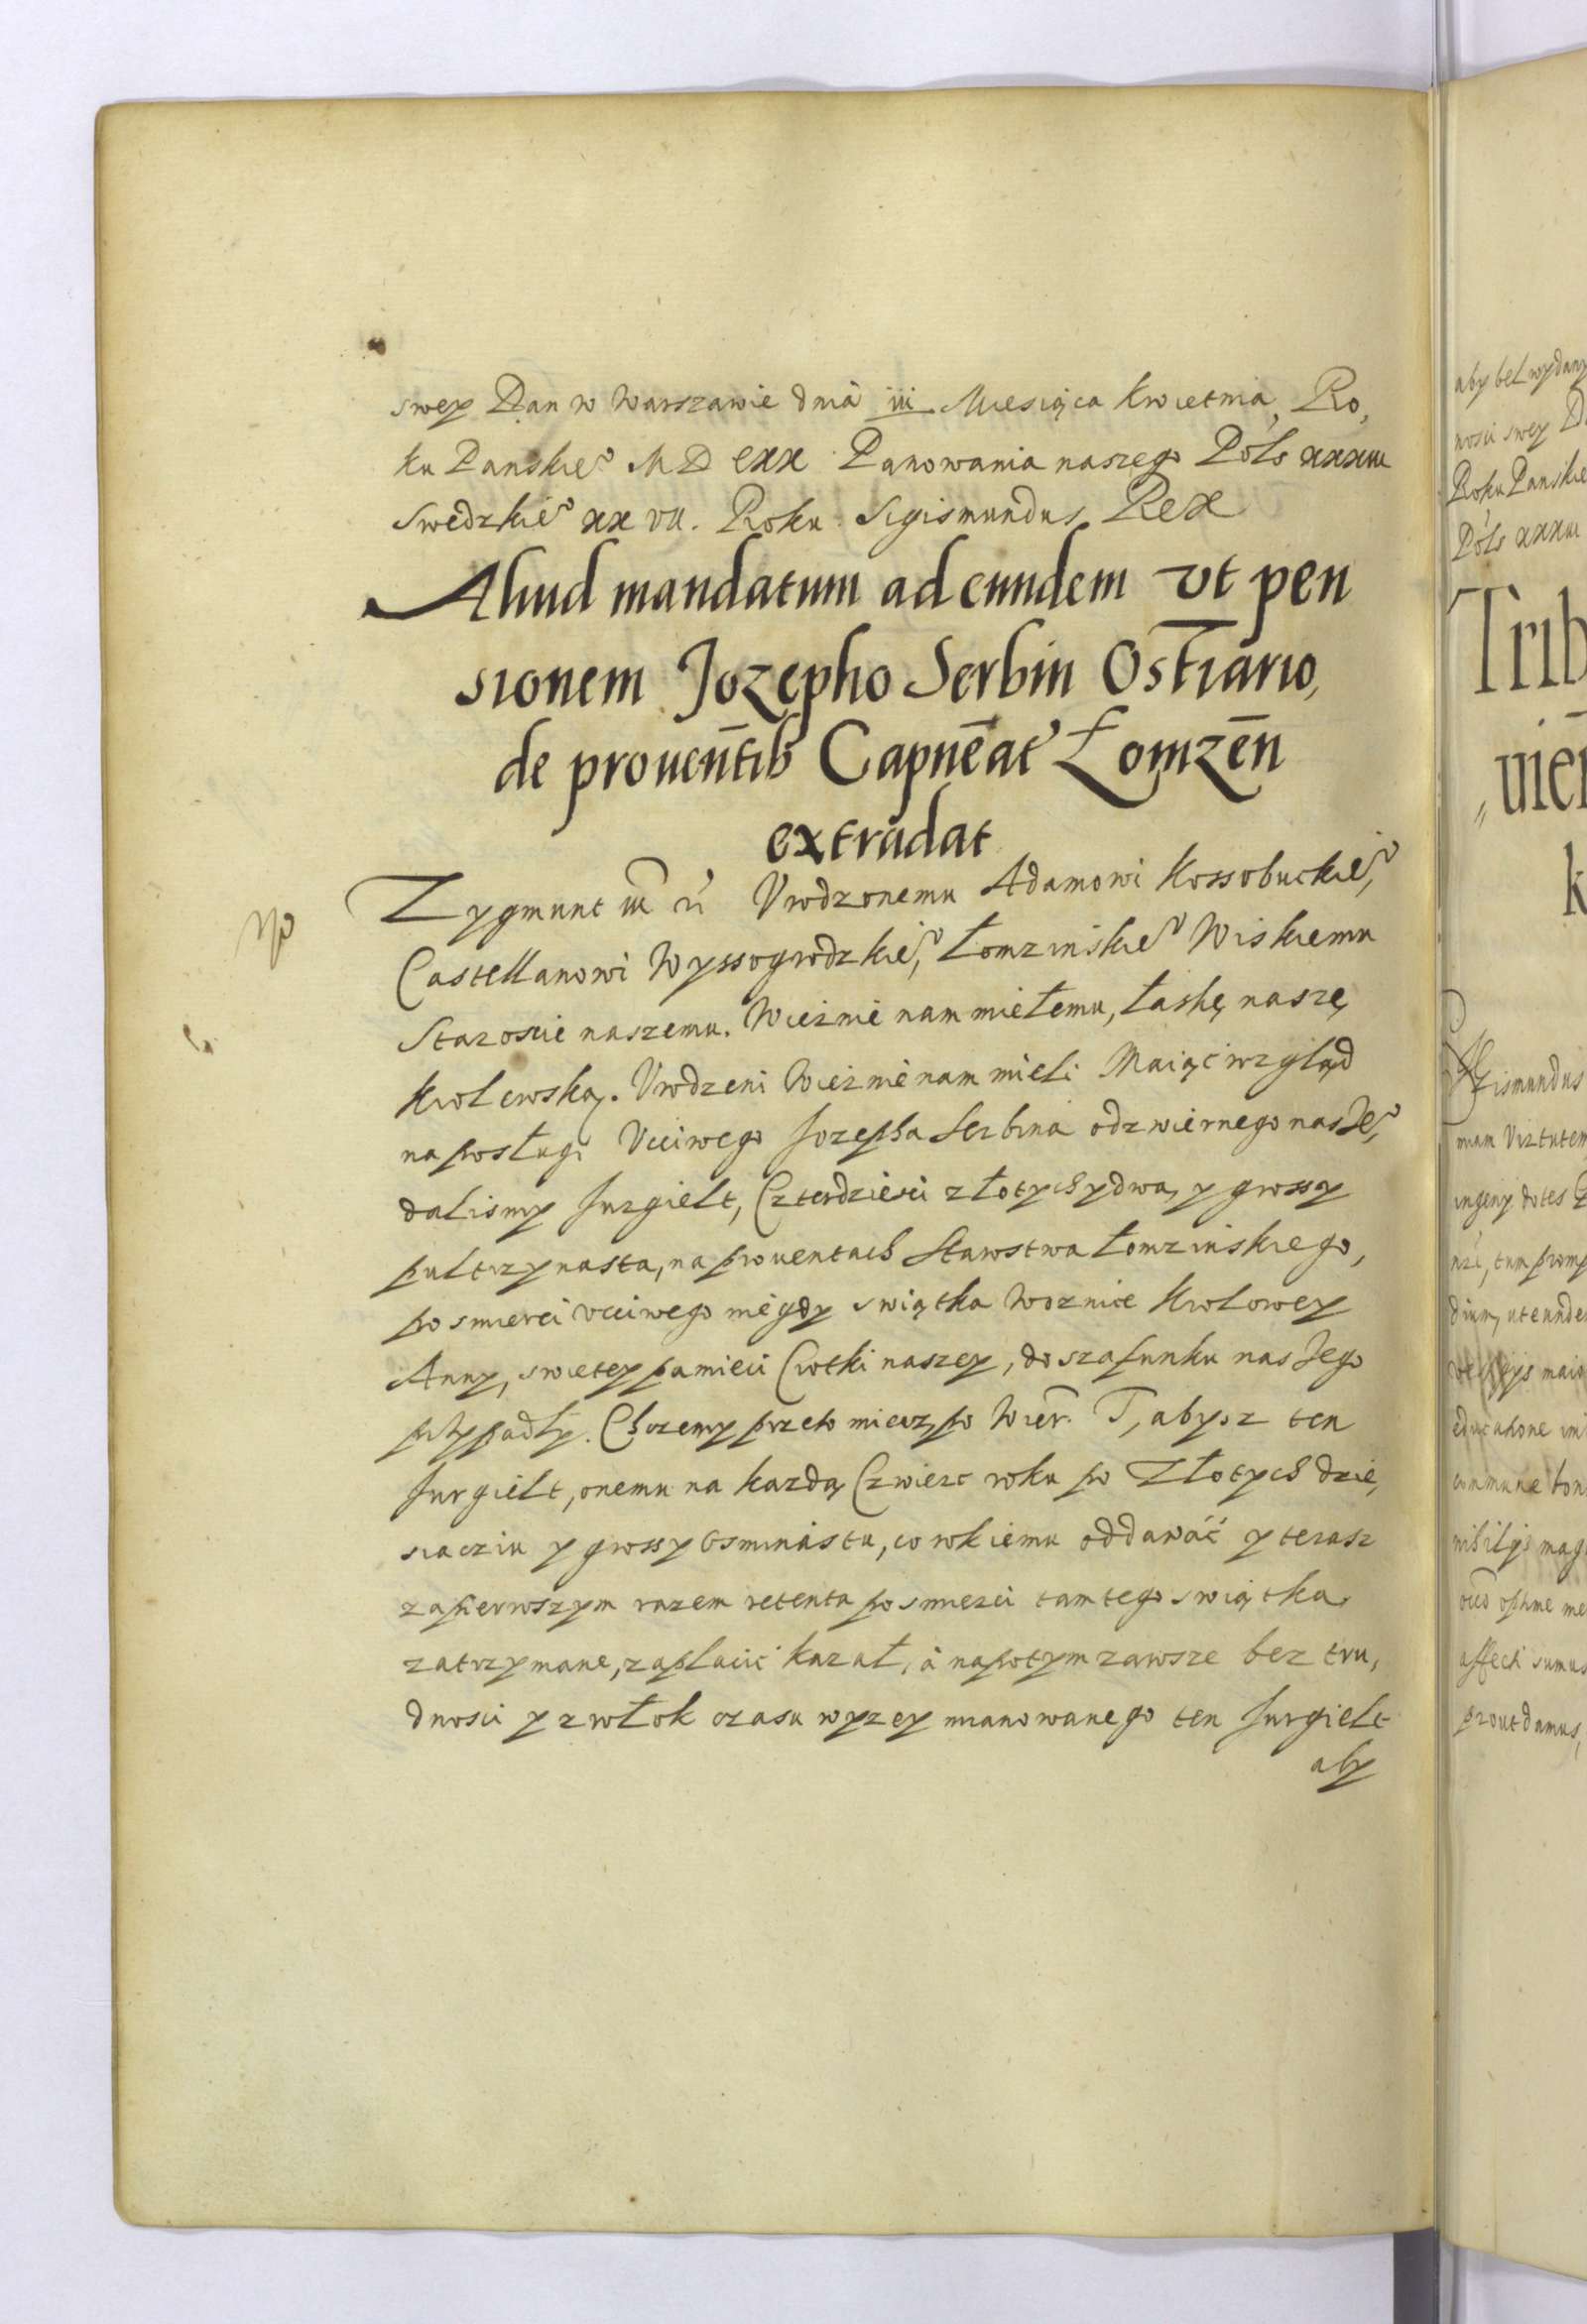 swey Dan w Warszawie dnia iii Miesiąca Kwietnia, Ro,
ku Panskie͛ MDCXX Panowania naszego Pols͛ xxxiii
Swedzkie͛ xxvii. Roku. Sigismundus Rex
Aliud mandatum ad eundem vt pen
sionem Jozepho Serbin Ostiario,
de prouent̄ib Capn̄eat͛ Łomzēn
extradat
Zygmunt iii
Vrodzonemu Adamowi Kossobuckie͛,
Castellanowi Wyssogrodzkie͛, Łomzinskie͛ Wiskiemu
Staroscie naszemu. Wieżmie nam miełemu, łaskę naszę
Krolewską. Vrodzeni Wieżmie nam mieli Maiąc wzgląd
na posługi Vcciwego Jozepha Serbina odzwiernego nasze͛,
dalismy Jurgielt, Czterdziesci złotych y dwa, y grossy
pultrzynasta, na prouentach Starostwa Łomzinskiego,
po smierci vcciwego niegdy swiątka Woznice Krolowey
Anny, swietey pamieci Ciotki naszey, do szafunku naszego
przypadły. Chcemy przeto miecz, po Wier. T, abysz ten
Jurgielt, onemu na kazdą Czwierc roku po Złotych dzie,
siacziu y grossy Osminastu, co rokiemu oddawáć y terasz
za pierwszym razem retenta po smierci tamtego swiątka
zatrzymane, zaplacić kazał, á napotym zawsze bez tru,
dnosci y zwłok czasu wyzey mianowanego ten Jurgielt
aby
aby bel wydany
nosci swey
Roku Panskie
Pols xxxiii
Trib
k
mam Virtutem
ingenij dotes
affecti sumus
prout damus,